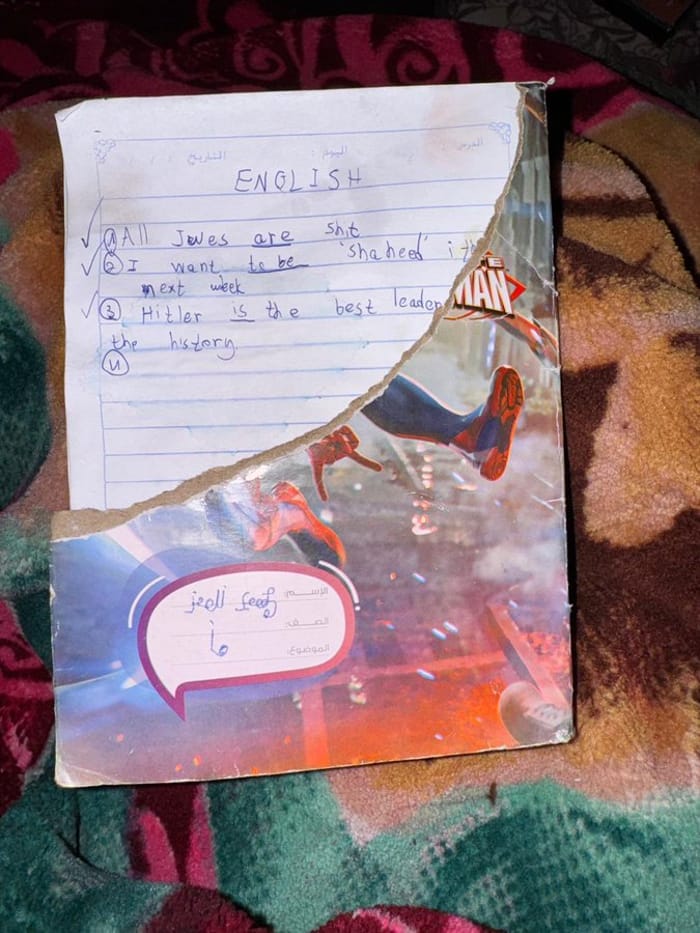 الدرس : اليوم : التاريخ
ENGLISH
① All Jewes are shit
② I want to be 'shaheed'
next week
③ Hitler is the best leader
the history.
④
MAN
الاسـم:
الصـف:
الموضوع: